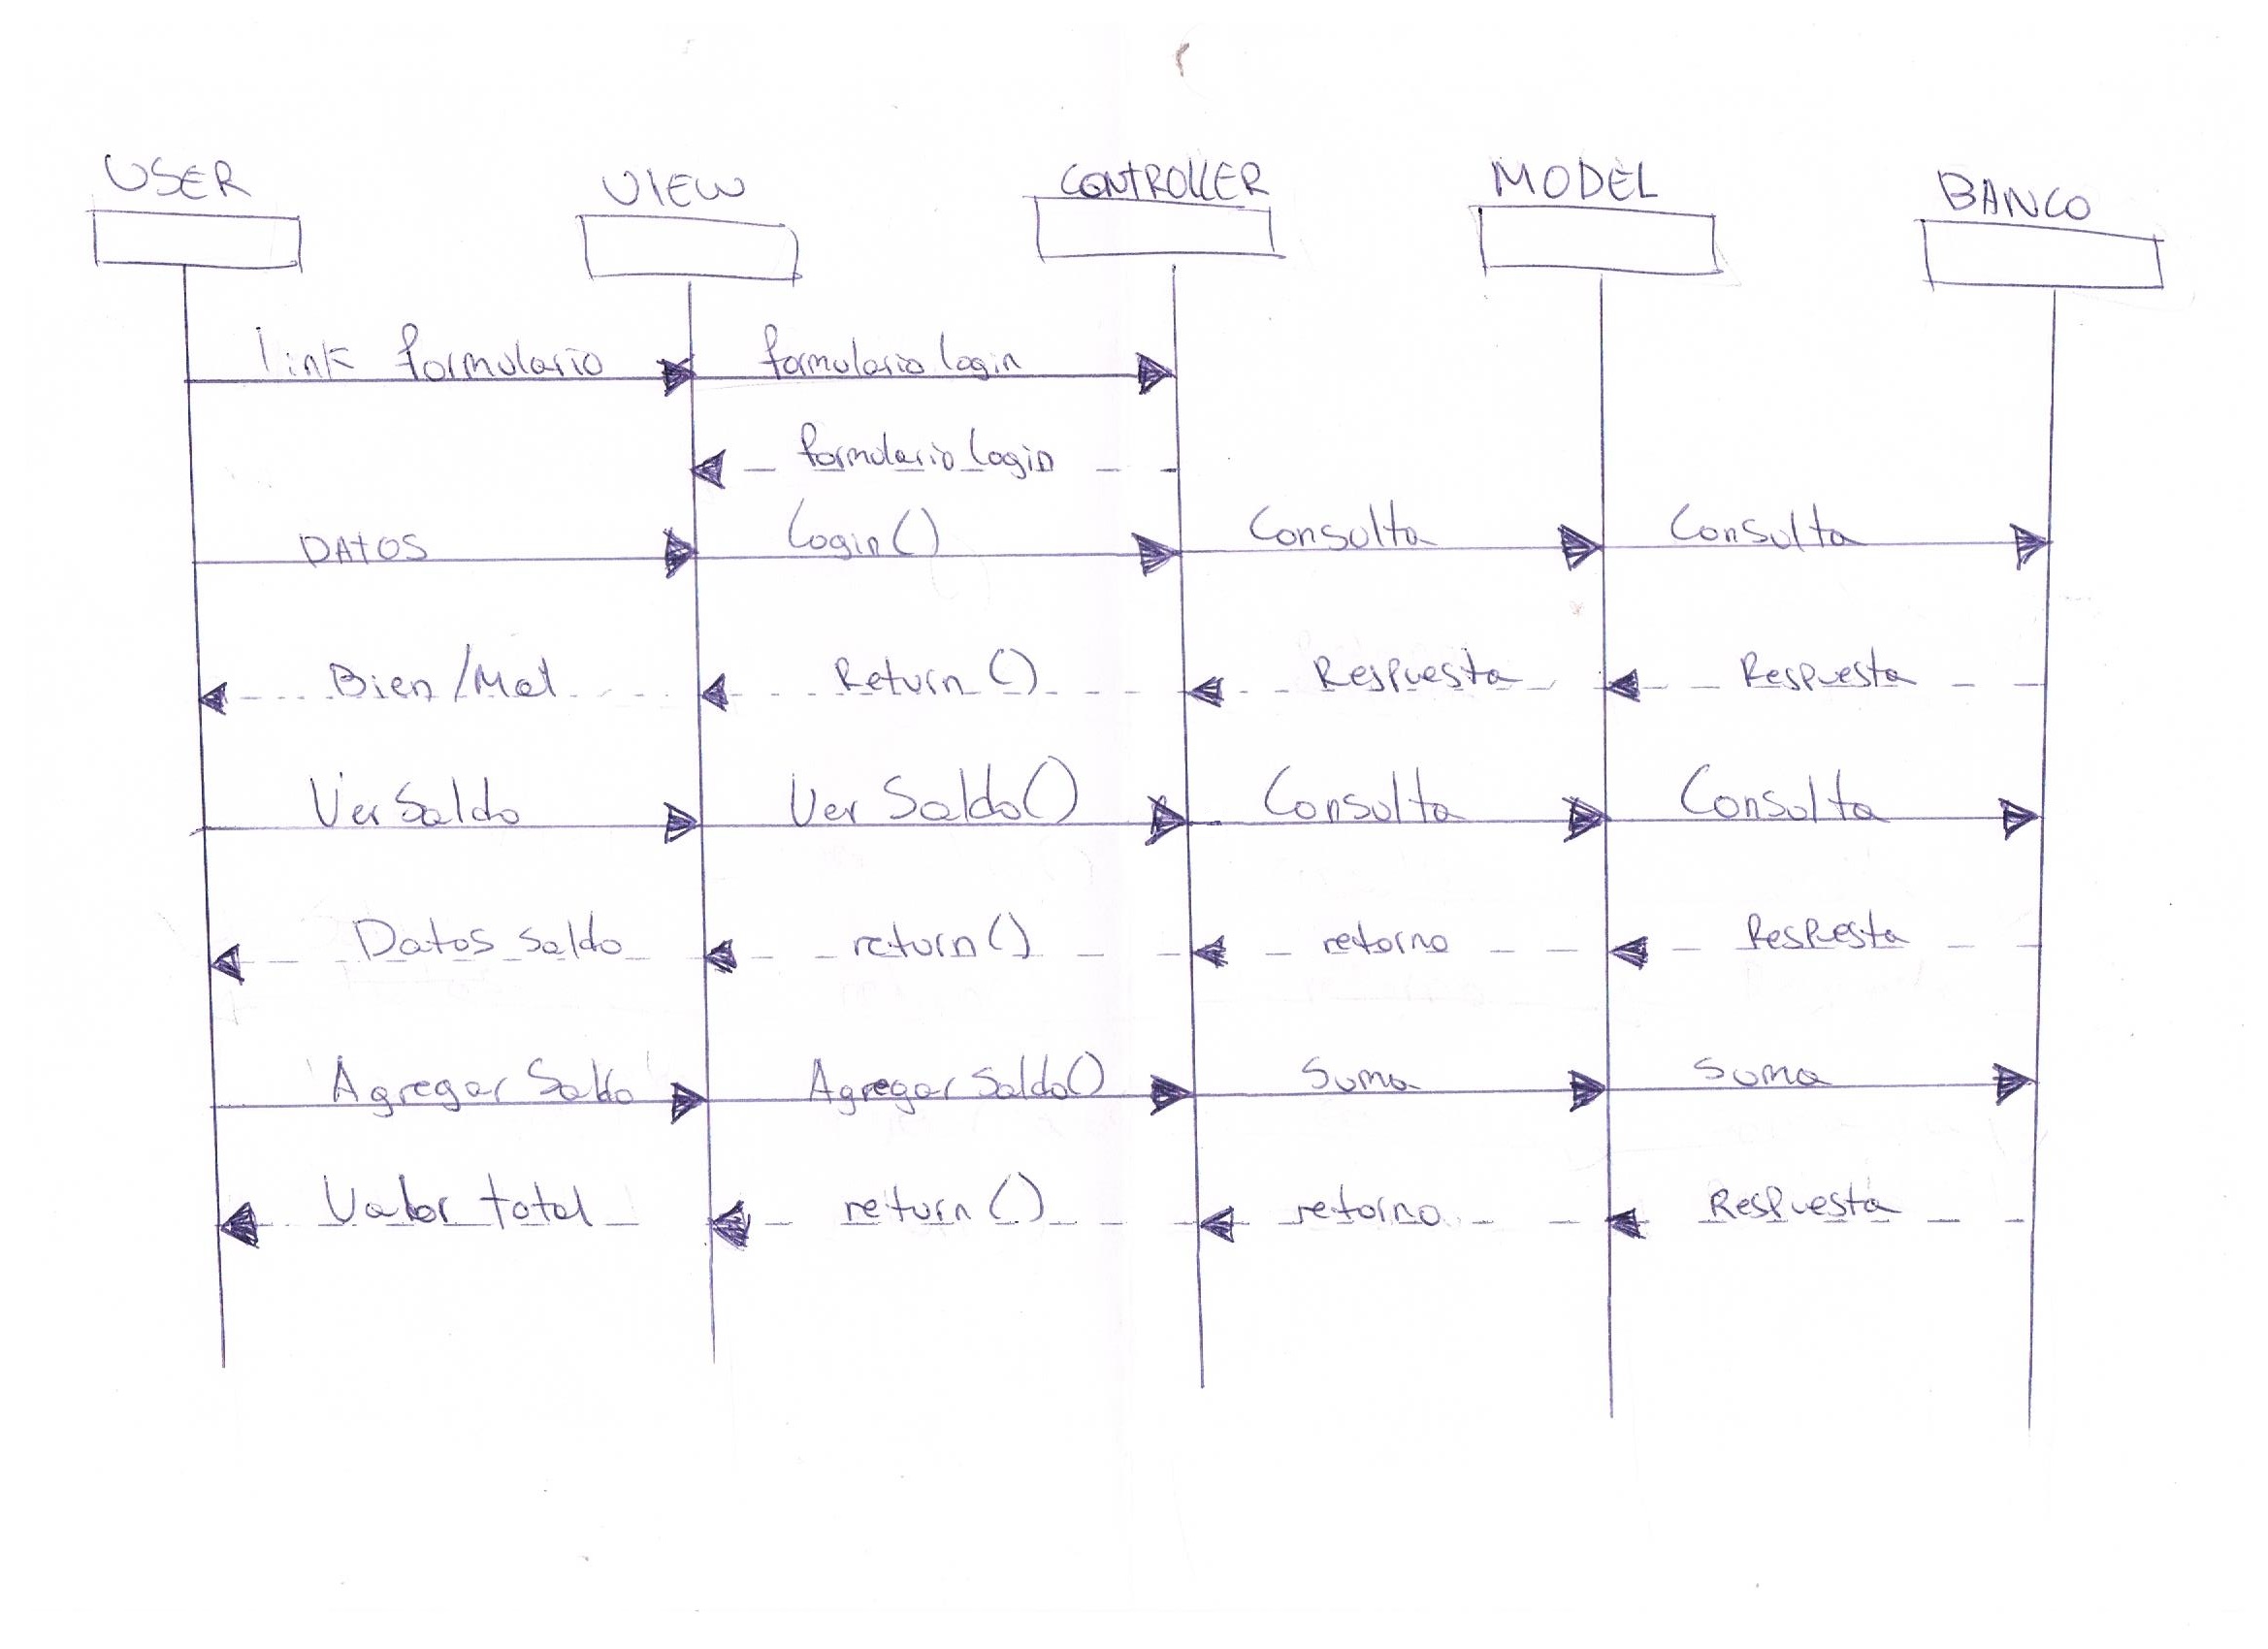 USER VIEW CONTROLLER MODEL BANCO
link formulario formulario login
formulario login
DATOS Login() Consulta Consulta
Bien/Mal Return() Respuesta Respuesta
Ver Saldo Ver Saldo() Consulta Consulta
Datos saldo return() retorno Respuesta
Agregar Saldo Agregar Saldo() Suma Suma
Valor total return() retorno Respuesta